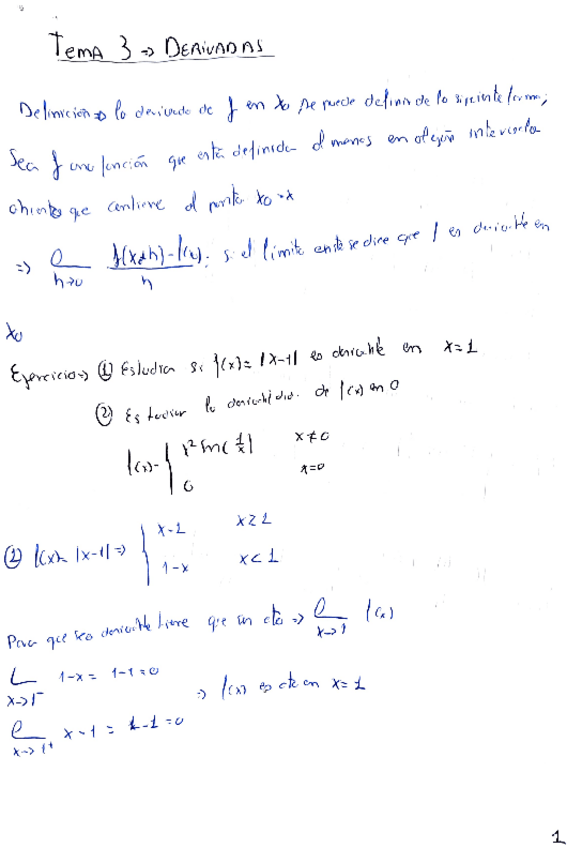 TEMA 3 => DERIVADAS
Definición => la derivada de f en x0 se puede definir de la siguiente forma;
Sea f una función que está definida al menos en algún intervalo
abierto que contiene al punto x0 = x
=> l h->0 f(x+h)-f(x) / h ; si el límite existe se dice que f es derivable en
x0
Ejercicios => ① Estudia si f(x) = |x-1| es derivable en x=1
② Estudiar la derivabilidad de f(x) en 0
f(x) = { x² sen(1/x) x≠0
0 x=0
① f(x) = |x-1| => { x-1 x≥1
1-x x<1
Para que sea derivable tiene que ser cta => l x->1 f(x)
L x->1⁻ 1-x = 1-1=0
=> f(x) es cta en x=1
l x->1⁺ x-1 = 1-1=0
1